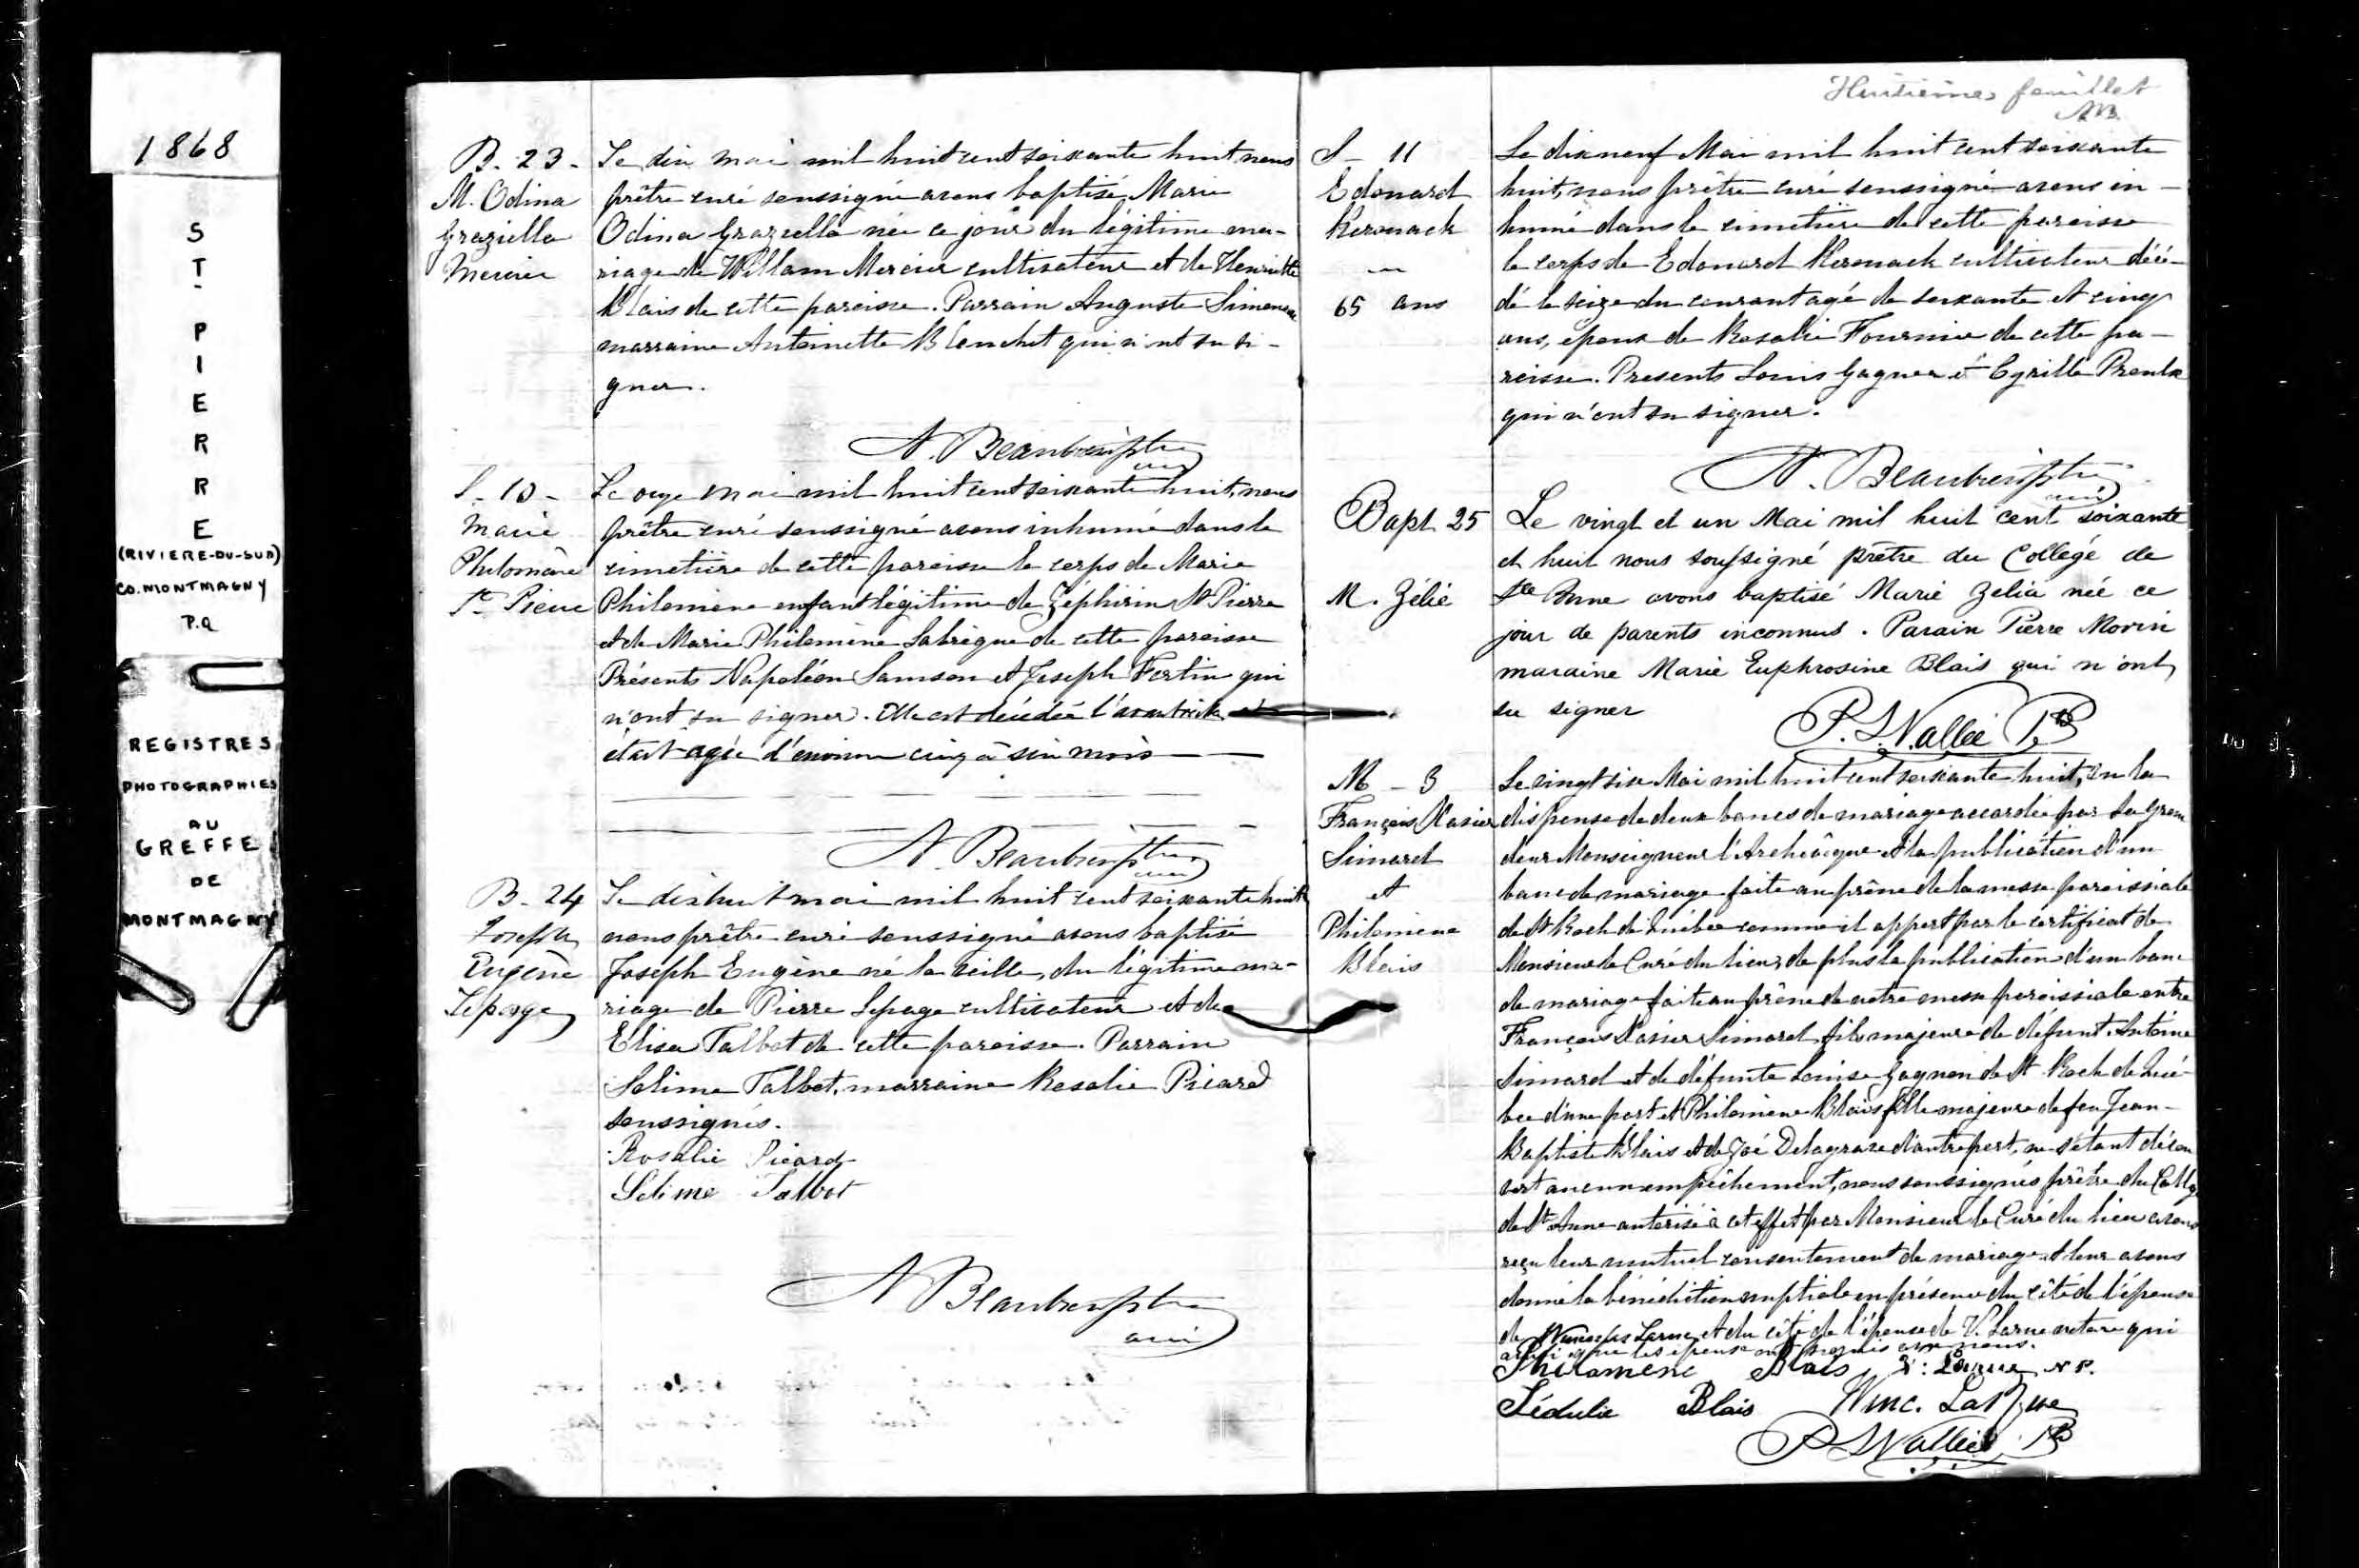 1868
ST PIERRE
(RIVIERE-DU-SUD)
CO. MONTMAGNY
P.Q
REGISTRES
PHOTOGRAPHIES
AU
GREFFE
DE
MONTMAGNY
B. 23.
M. Odina
Graziella
Mercier
Le dix mai mil huit cent soixante huit, nous
prêtre curé soussigné avons baptisé Marie
Odina Graziella née ce jour du légitime ma-
riage de William Mercier cultivateur et de Henriette
Blais de cette paroisse. Parrain Auguste Simoneau
marraine Antoinette Blanchet qui n'ont su si-
gner.
N. Beaubien ptre
curé
S. 10 -
Marie
Philomène
St Pierre
Le onze mai mil huit cent soixante huit, nous
prêtre curé soussigné avons inhumé dans le
cimetière de cette paroisse le corps de Marie
Philomène enfant légitime de Zéphirin St Pierre
et de Marie Philomène Labrèque de cette paroisse
Présents Napoléon Samson et Joseph Fortin qui
n'ont su signer. Elle est décédée l'avantveille et
était agée d'environ cinq à six mois
N. Beaubien ptre
curé
B. 24
Joseph
Eugène
Lepage
Le dix huit mai mil huit cent soixante huit
nous prêtre curé soussigné avons baptisé
Joseph Eugène né la veille, du légitime ma-
riage de Pierre Lepage cultivateur et de
Elisa Talbot de cette paroisse. Parrain
Solime Talbot, marraine Rosalie Picard
soussignés.
Rosalie Picard
Solime Talbot
N Beaubien ptre
curé
Huitième feuillet
S - 11
Edouard
Kerouack
65 ans
Le dix neuf Mai mil huit cent soixante
huit, nous prêtre curé soussigné avons in-
humé dans le cimetière de cette paroisse
le corps de Edouard Kerouack cultivateur décé-
dé le seize du courant agé de soixante et cinq
ans, époux de Rosalie Fournier de cette pa-
roisse. Presents Louis Gagnon et Cyrille Proulx
qui n'ont su signer.
N. Beaubien ptre
curé
Bapt 25
M. Zélié
Le vingt et un Mai mil huit cent soixante
et huit nous soussigné prêtre du Collège de
Ste Anne avons baptisé Marie Zelia née ce
jour de parents inconnus. Parain Pierre Morin
maraine Marie Euphrosine Blais qui n'ont
su signer
P. S. Vallée Ptre
M - 3
François Xavier
Simard
et
Philomène
Blais
Le vingt six Mai mil huit cent soixante huit, vu la
dispense de deux bancs de mariage accordée par Sa Gran
deur Monseigneur l'Archevêque et la publication d'un
banc de mariage faite au prône de la messe paroissiale
de St Roch de Québec comme il appert par le certificat de
Monsieur le Curé du lieu, de plus la publication d'un banc
de mariage faite au prône de notre messe paroissiale entre
François Xavier Simard fils majeur de défunt Antoine
Simard et de défunte Louise Gagnon de St Roch de Qué-
bec d'une part et Philomène Blais fille majeure de feu Jean-
Baptiste Blais et de Zoé Delagrave d'autre part, ne s'étant décou
vert aucun empêchement, nous soussignés prêtre du Collège
de Ste Anne autorisé à cet effet par Monsieur le Curé du lieu avons
reçu leur mutuel consentement de mariage et leur avons
donné la bénédiction nuptiale en présence du côté de l'épouse
de Wenceslas Larue et du côté de l'épouse de V. Larue notaire qui
ainsi que les épouse ont signés avec nous.
Philomene Blais V. Larue N.P.
Sédulie Blais Winc. LaRue
P S Vallée Ptre